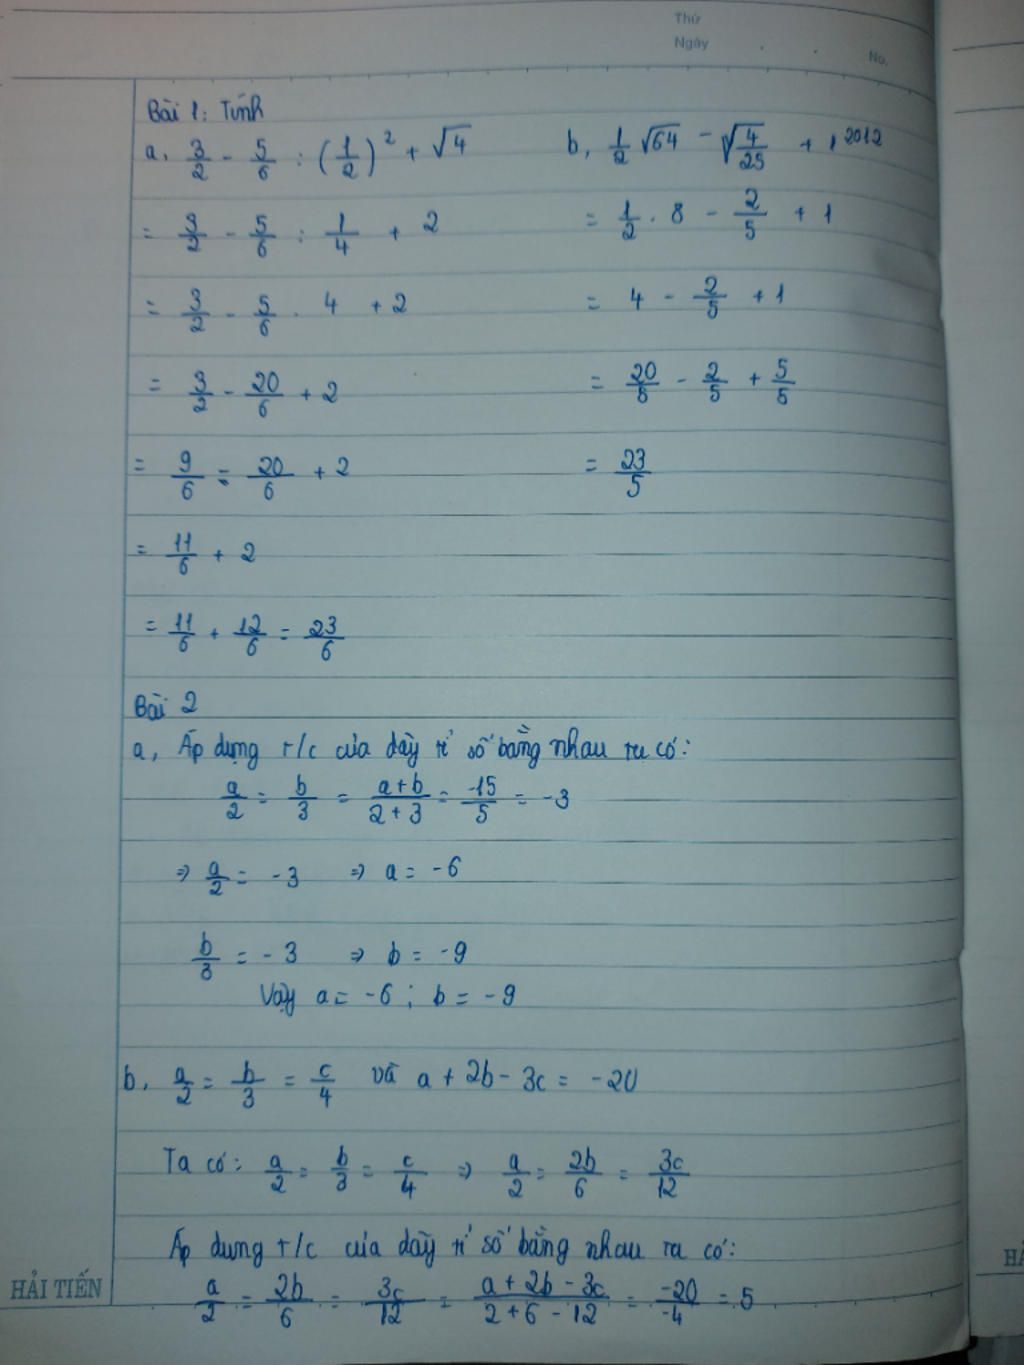 Thứ
Ngày . .
No.
Bài 1: Tính
a, 3/2 - 5/6 : (1/2)² + √4
b, 1/2 √64 - √4/25 + 1²⁰¹²
= 3/2 - 5/6 : 1/4 + 2
= 1/2 . 8 - 2/5 + 1
= 3/2 - 5/6 . 4 + 2
= 4 - 2/5 + 1
= 3/2 - 20/6 + 2
= 20/5 - 2/5 + 5/5
= 9/6 - 20/6 + 2
= 23/5
= 11/6 + 2
= 11/6 + 12/6 = 23/6
Bài 2
a, Áp dụng t/c của dãy tỉ số bằng nhau ta có:
a/2 = b/3 = a+b/2+3 = -15/5 = -3
⇒ a/2 = -3 ⇒ a = -6
b/3 = -3 ⇒ b = -9
Vậy a = -6 ; b = -9
b, a/2 = b/3 = c/4 và a + 2b - 3c = -20
Ta có: a/2 = b/3 = c/4 ⇒ a/2 = 2b/6 = 3c/12
Áp dụng t/c của dãy tỉ số bằng nhau ta có:
a/2 = 2b/6 = 3c/12 = a + 2b - 3c/2 + 6 - 12 = -20/-4 = 5
HẢI TIẾN